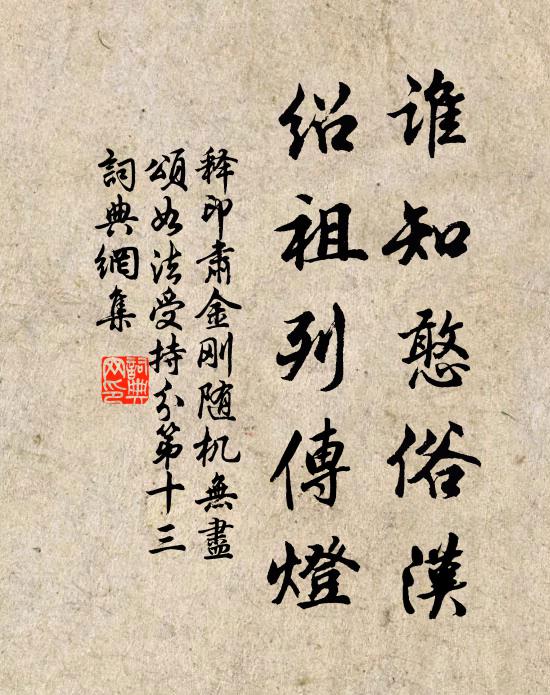 谁知憨俗漢
绍祖列傳燈
释印肃金刚随机無盡
頌如法受持分第十三
詞典網集
詞典
网印